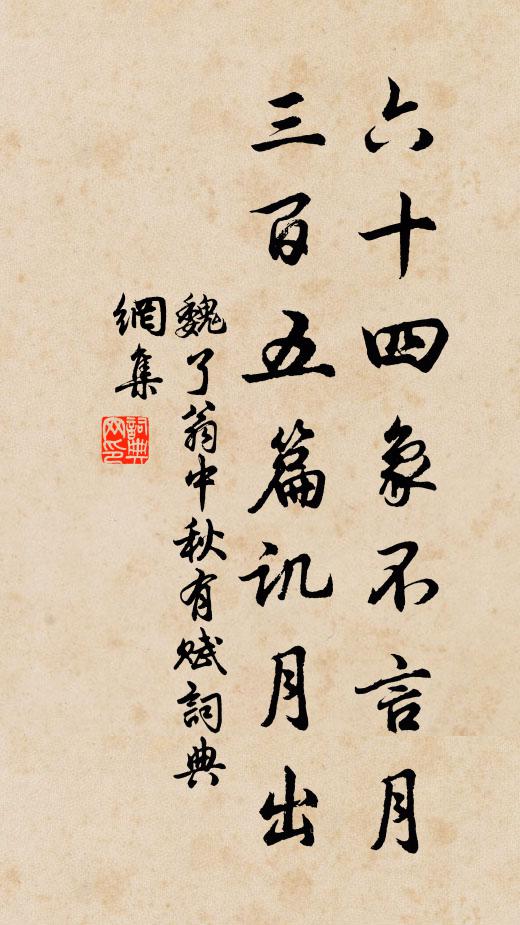 六十四象不言月
三百五篇讥月出
魏了翁中秋有賦詞典
網集
詞典
网印